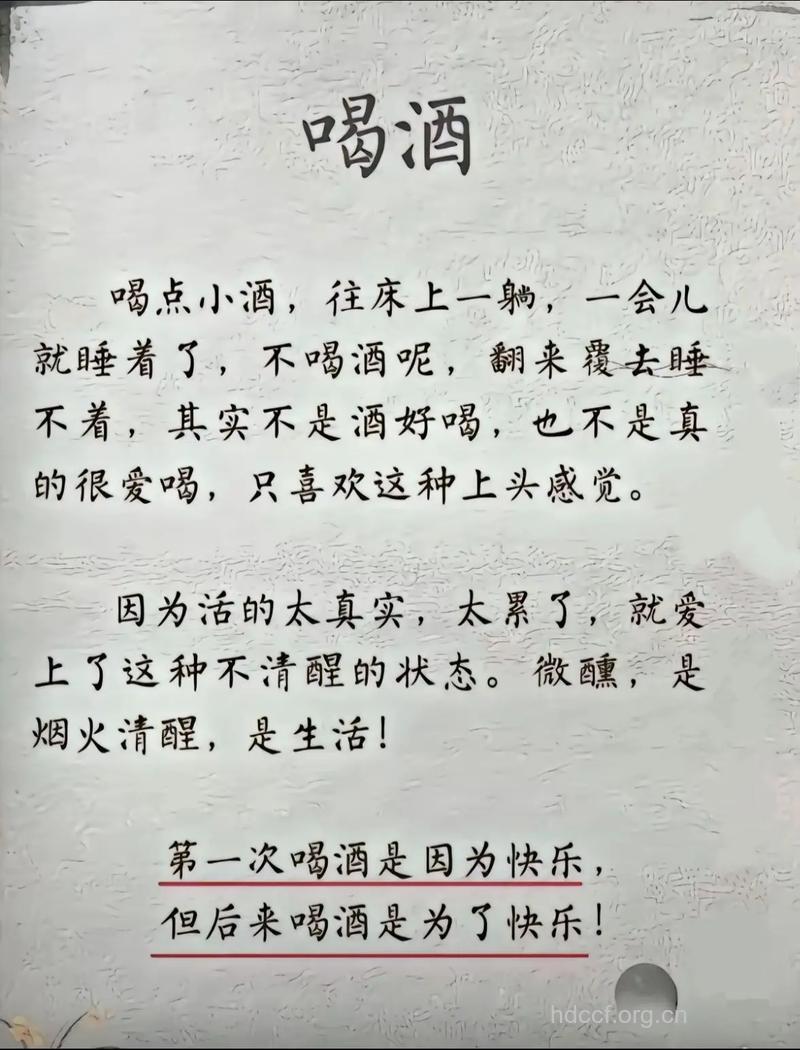 喝酒
喝点小酒，往床上一躺，一会儿
就睡着了，不喝酒呢，翻来覆去睡
不着，其实不是酒好喝，也不是真
的很爱喝，只喜欢这种上头感觉。
因为活的太真实，太累了，就爱
上了这种不清醒的状态。微醺，是
烟火清醒，是生活！
第一次喝酒是因为快乐，
但后来喝酒是为了快乐！
hdccf.org.cn